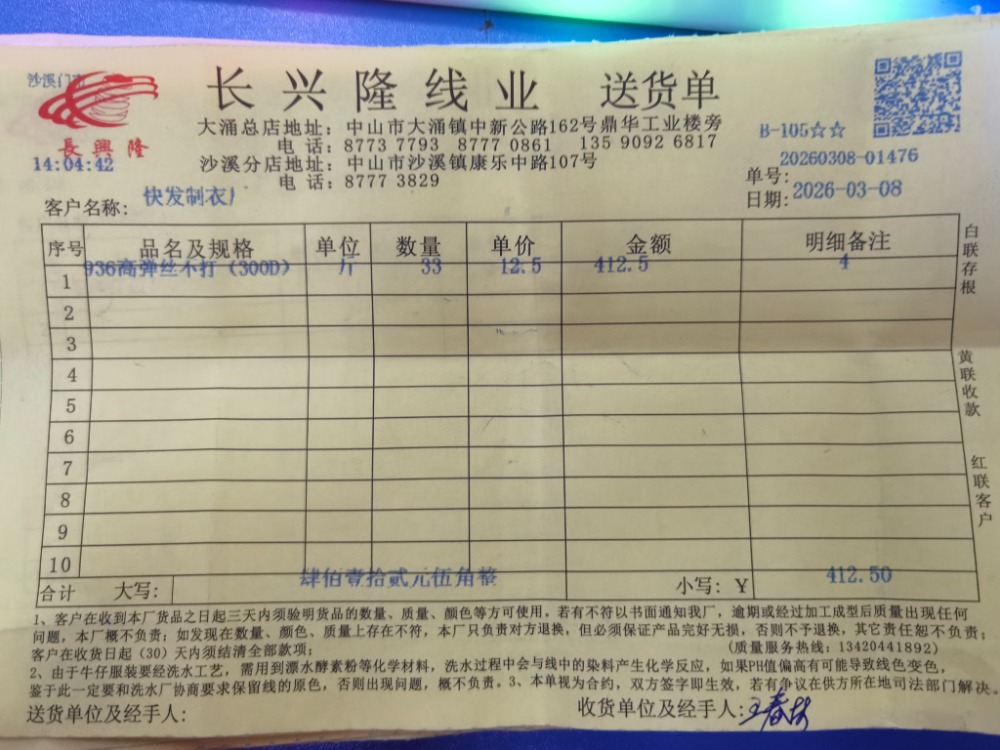 沙溪门市
長興隆
14:04:42
长兴隆线业 送货单
大涌总店地址：中山市大涌镇中新公路162号鼎华工业楼旁
电话：8773 7793 8777 0861 135 9092 6817
沙溪分店地址：中山市沙溪镇康乐中路107号
电话：8777 3829
B-105☆☆
单号：20260308-01476
日期：2026-03-08
客户名称：快发制衣厂
序号 品名及规格 单位 数量 单价 金额 明细备注
1 936高弹丝不打（300D） 斤 33 12.5 412.5 4
2
3
4
5
6
7
8
9
10
合计 大写： 肆佰壹拾贰元伍角整 小写：¥ 412.50
白联存根
黄联收款
红联客户
1、客户在收到本厂货品之日起三天内须验明货品的数量、质量、颜色等方可使用。若有不符以书面通知我厂，逾期或经过加工成型后质量出现任何
问题，本厂概不负责；如发现在数量、颜色、质量上存在不符，本厂只负责对方退换，但必须保证产品完好无损，否则不予退换，其它责任恕不负责；
客户在收货日起（30）天内须结清全部款项； （质量服务热线：13420441892）
2、由于牛仔服装要经洗水工艺，需用到漂水酵素粉等化学材料，洗水过程中会与线中的染料产生化学反应，如果PH值偏高有可能导致线色变色，
鉴于此一定要和洗水厂协商要求保留线的原色，否则出现问题，概不负责。3、本单视为合约，双方签字即生效，若有争议在供方所在地司法部门解决。
送货单位及经手人： 收货单位及经手人：王春林